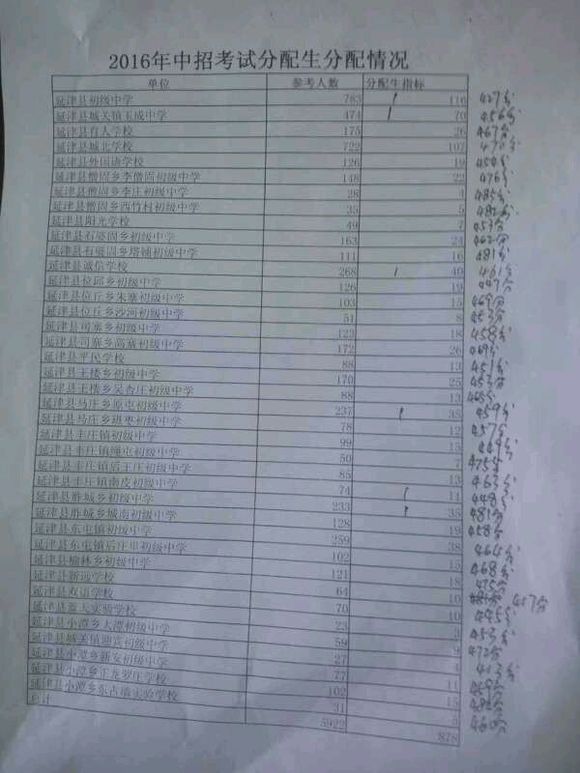 2016年中招考试分配生分配情况
单位 参考人数 分配生指标
延津县初级中学 783 116 427分
延津县城关镇玉成中学 474 70 456分
延津县育人学校 175 26 467分
延津县城北学校 722 107 470分
延津县外国语学校 126 19 454分
延津县僧固乡李僧固初级中学 148 22 476分
延津县僧固乡李庄初级中学 28 4 485分
延津县僧固乡西竹村初级中学 35 5 482分
延津县阳光学校 49 7 453分
延津县石婆固乡初级中学 163 24 462分
延津县石婆固乡塔铺初级中学 111 16 481分
延津县诚信学校 268 40 461分
延津县位邱乡初级中学 126 19 447分
延津县位丘乡朱寨初级中学 103 15 469分
延津县位丘乡沙河初级中学 51 8 453分
延津县司寨乡初级中学 123 18 458分
延津县司寨乡高寨初级中学 172 26 469分
延津县平民学校 88 13 451分
延津县王楼乡初级中学 170 25 453分
延津县王楼乡吴杏庄初级中学 88 13 465分
延津县马庄乡原屯初级中学 237 35 459分
延津县马庄乡班枣初级中学 78 12 457分
延津县丰庄镇初级中学 99 15 449分
延津县丰庄镇绳屯初级中学 50 7 475分
延津县丰庄镇后王庄初级中学 85 13 463分
延津县丰庄镇南皮初级中学 74 11 448分
延津县胙城乡初级中学 233 35 481分
延津县胙城乡城南初级中学 128 19 458分
延津县东屯镇初级中学 259 38 464分
延津县东屯镇后庄里初级中学 102 15 468分
延津县榆林乡初级中学 121 18
延津县新迪学校 64 10 457分
延津县双语学校 70 10 445分
延津县蓝天实验学校 23 3 453分
延津县小潭乡大潭初级中学 59 9 472分
延津县城关镇迎宾初级中学 27 4 413分
延津县小潭乡新安初级中学 77 11 459分
延津县小潭乡正龙罗庄学校 102 15
延津县小潭乡东古墙实验学校 31 5 460分
总计 5922 878